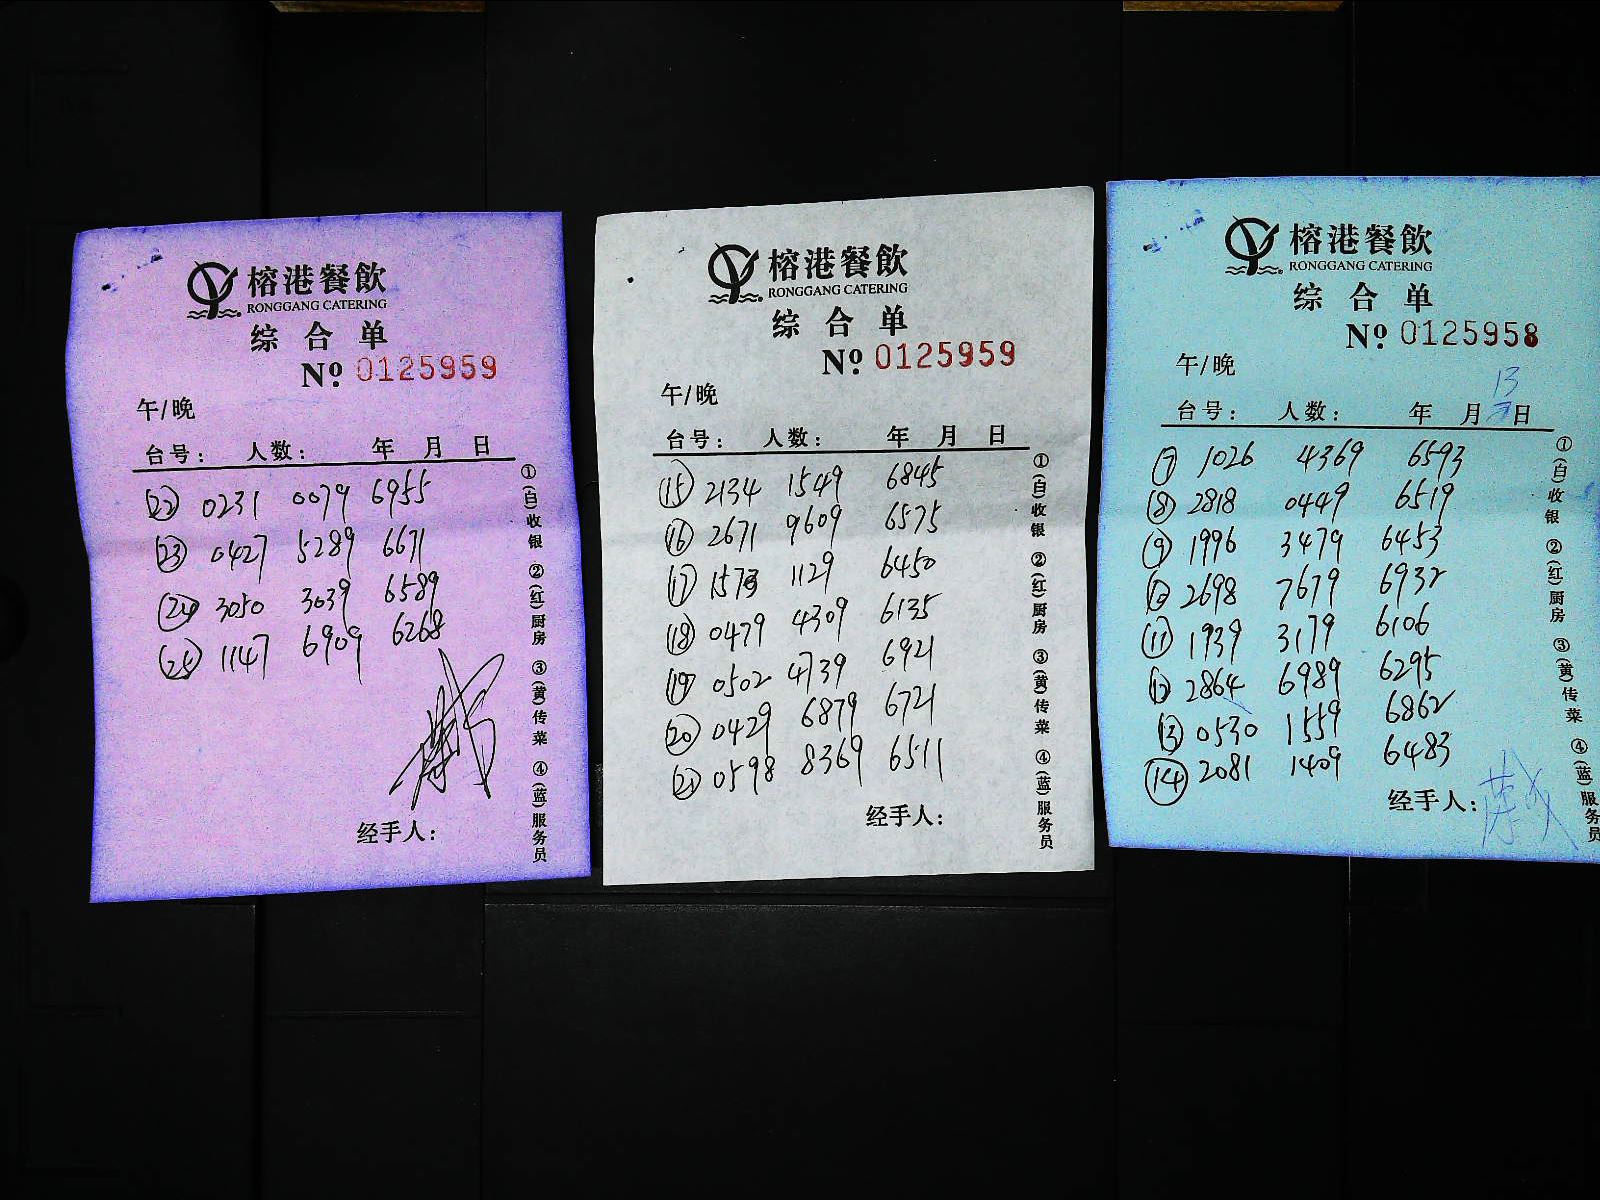 榕港餐飲
RONGGANG CATERING
综合单
Nº 0125959
午/晚
台号： 人数： 年 月 日
㉒ 0231 0079 6955
㉓ 0427 5289 6671
㉔ 3050 3039 6589
㉕ 1147 6909 6268
经手人：
①(白)收银 ②(红)厨房 ③(黄)传菜 ④(蓝)服务员
榕港餐飲
RONGGANG CATERING
综合单
Nº 0125959
午/晚
台号： 人数： 年 月 日
⑮ 2134 1549 6845
⑯ 2671 9609 6575
⑰ 1573 1129 6450
⑱ 0479 4309 6135
⑲ 0502 4739 6921
⑳ 0429 6879 6721
㉑ 0598 8369 6511
经手人：
①(白)收银 ②(红)厨房 ③(黄)传菜 ④(蓝)服务员
榕港餐飲
RONGGANG CATERING
综合单
Nº 0125958
午/晚
13
台号： 人数： 年 月 日
⑦ 1026 4369 6593
⑧ 2818 0449 6519
⑨ 1996 3479 6453
⑩ 2698 7679 6932
⑪ 1939 3179 6106
⑫ 2864 6989 6295
⑬ 0530 1559 6862
⑭ 2081 1409 6483
经手人：
①(白)收银 ②(红)厨房 ③(黄)传菜 ④(蓝)服务员